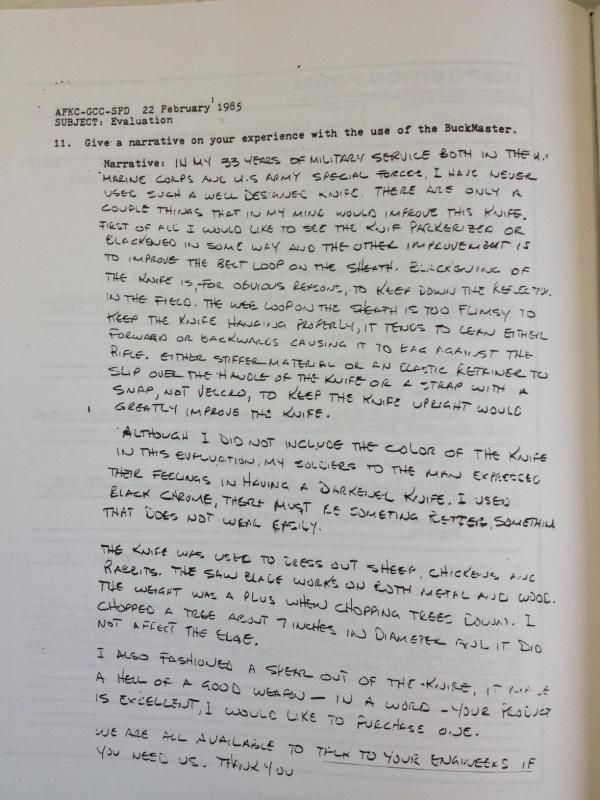 AFKC-GCC-SFD 22 February 1985
SUBJECT: Evaluation
11. Give a narrative on your experience with the use of the BuckMaster.
Narrative: IN MY 33 YEARS OF MILITARY SERVICE BOTH IN THE U.S
MARINE CORPS AND U.S ARMY SPECIAL FORCES, I HAVE NEVER
USED SUCH A WELL DESIGNED KNIFE. THERE ARE ONLY A
COUPLE THINGS THAT IN MY MIND WOULD IMPROVE THIS KNIFE.
FIRST OF ALL I WOULD LIKE TO SEE THE KNIF PARKERIZED OR
BLACKENED IN SOME WAY AND THE OTHER IMPROVEMENT IS
TO IMPROVE THE BELT LOOP ON THE SHEATH. BLACKENING OF
THE KNIFE IS, FOR OBVIOUS REASONS, TO KEEP DOWN THE REFLECTION
IN THE FIELD. THE WEB LOOP ON THE SHEATH IS TOO FLIMSY TO
KEEP THE KNIFE HANGING PROPERLY, IT TENDS TO LEAN EITHER
FORWARD OR BACKWARDS CAUSING IT TO BAG AGAINST THE
RIFLE. EITHER STIFFER MATERIAL OR AN ELASTIC RETAINER TO
SLIP OVER THE HANDLE OF THE KNIFE OR A STRAP WITH A
SNAP, NOT VELCRO, TO KEEP THE KNIFE UPRIGHT WOULD
GREATLY IMPROVE THE KNIFE.
ALTHOUGH I DID NOT INCLUDE THE COLOR OF THE KNIFE
IN THIS EVALUATION, MY SOLDIERS TO THE MAN EXPRESSED
THEIR FEELINGS IN HAVING A DARKENED KNIFE. I USED
BLACK CHROME, THERE MUST BE SOMETING BETTER, SOMETHING
THAT DOES NOT WEAR EASILY.
THE KNIFE WAS USED TO DRESS OUT SHEEP, CHICKENS AND
RABBITS. THE SAW BLADE WORKS ON BOTH METAL AND WOOD.
THE WEIGHT WAS A PLUS WHEN CHOPPING TREES DOWN. I
CHOPPED A TREE ABOUT 7 INCHES IN DIAMETER AND IT DID
NOT AFFECT THE EDGE.
I ALSO FASHIONED A SPEAR OUT OF THE KNIFE, IT MADE
A HELL OF A GOOD WEAPON — IN A WORD — YOUR PRODUCT
IS EXCELLENT, I WOULD LIKE TO PURCHASE ONE.
WE ARE ALL AVAILABLE TO TALK TO YOUR ENGINEERS IF
YOU NEED US. THANK YOU